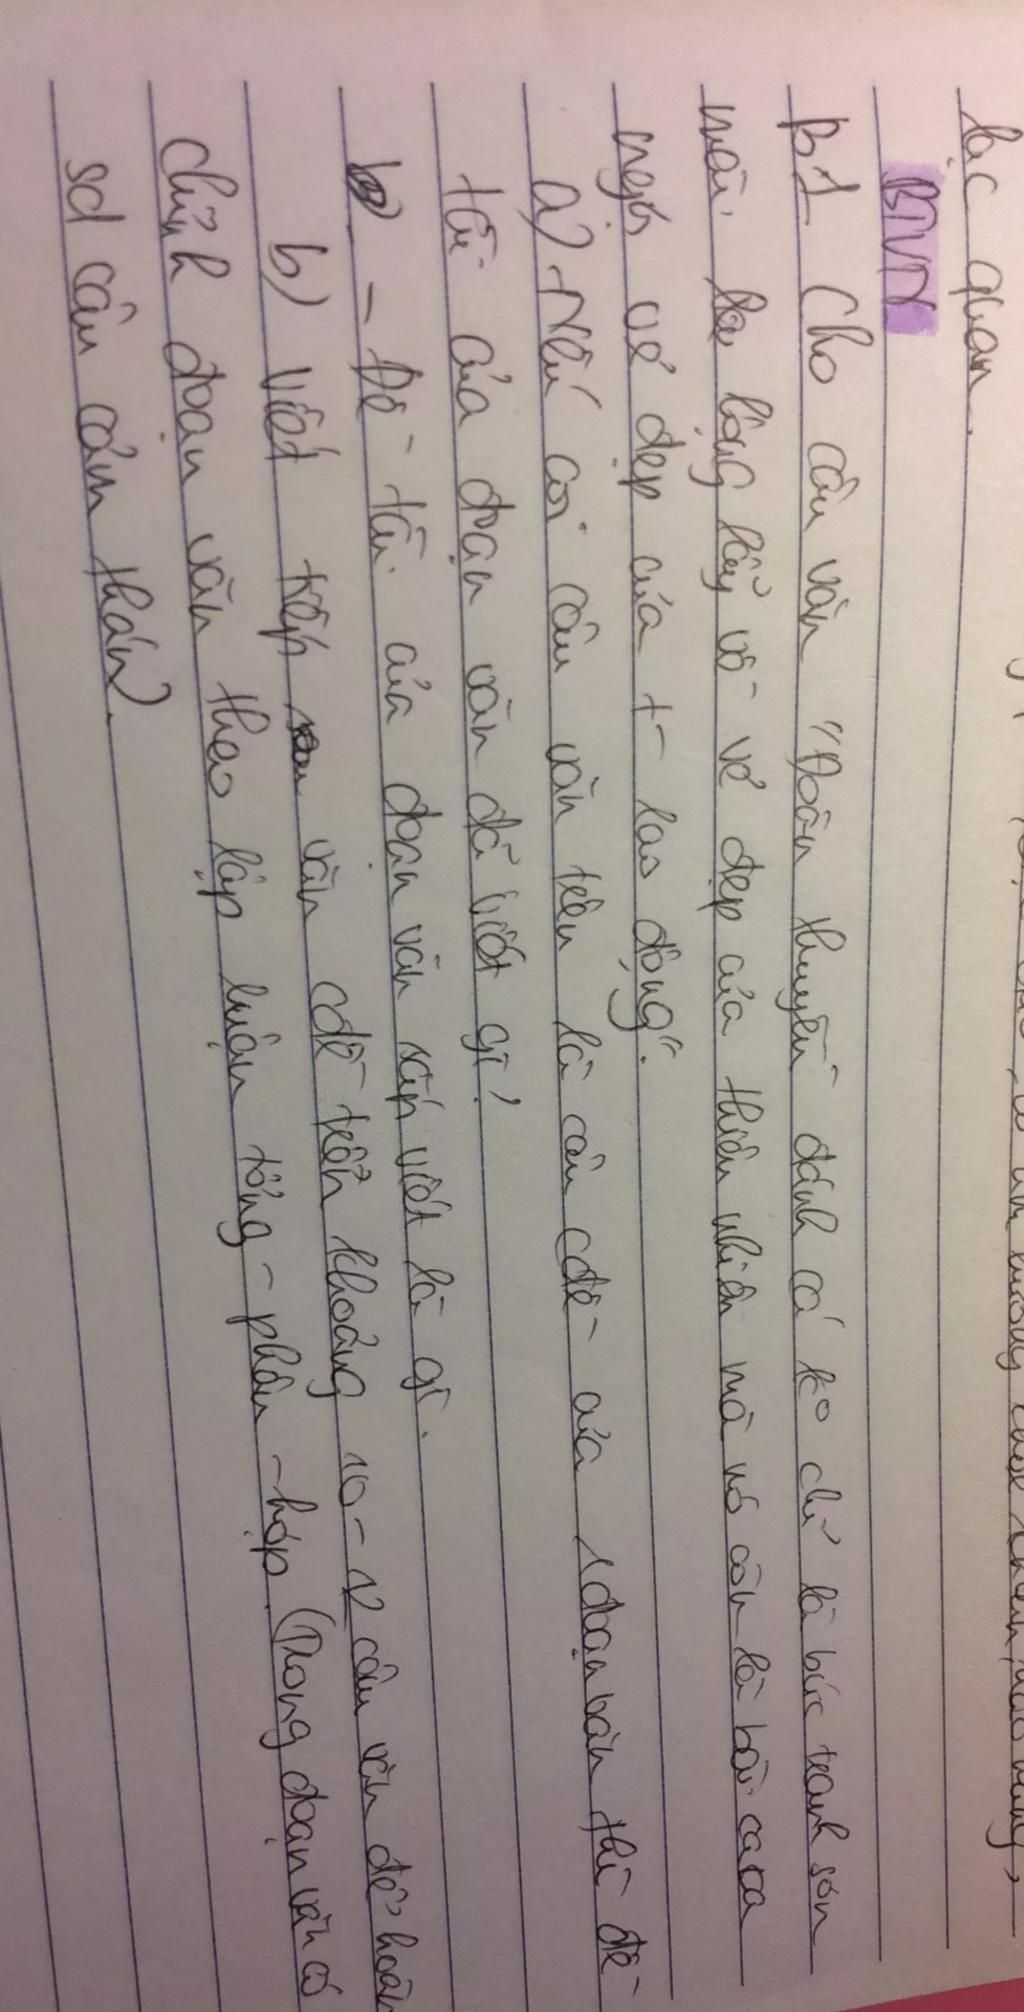 lạc quan.
BTVN
B1 Cho câu văn "Đoàn thuyền đánh cá ko chỉ là bức tranh sơn
mài lộng lẫy về vẻ đẹp của thiên nhiên mà nó còn là bài ca ca
ngợi vẻ đẹp của lao động".
a) Nếu coi câu văn trên là câu cđề của 1 đoạn văn thì đề
tài của đoạn văn đã viết gì?
- Đề tài của đoạn văn sắp viết là gì.
b) Viết tiếp văn cđề trên khoảng 10-12 câu văn để hoàn
chỉnh đoạn văn theo lập luận tổng - phân - hợp (Trong đoạn văn có
sd câu cảm thán).